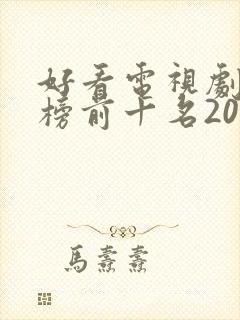 好看電視劇
榜前十名20
馬燾燾